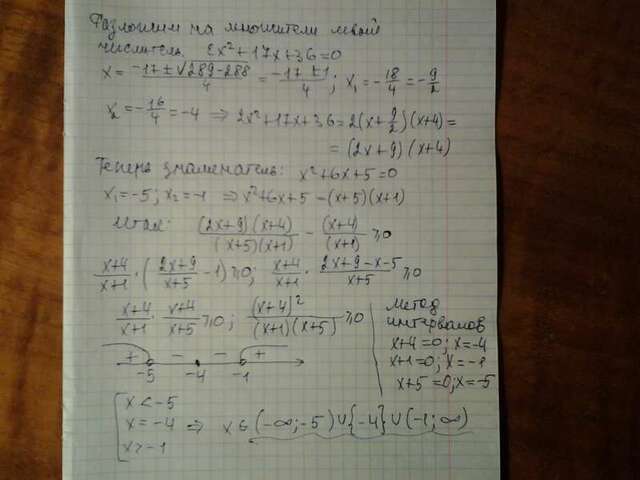 Разложим на множители левый
числитель. 2x²+17x+36=0
x = (-17±√(289-288))/4 = (-17±1)/4; x₁ = -18/4 = -9/2
x₂ = -16/4 = -4 ⇒ 2x²+17x+36 = 2(x+9/2)(x+4) =
= (2x+9)(x+4)
Теперь знаменатель: x²+6x+5=0
x₁=-5; x₂=-1 ⇒ x²+6x+5 = (x+5)(x+1)
Итак: (2x+9)(x+4)/((x+5)(x+1)) - (x+4)/(x+1) ≥0
(x+4)/(x+1) · ((2x+9)/(x+5) - 1) ≥0; (x+4)/(x+1) · (2x+9-x-5)/(x+5) ≥0
(x+4)/(x+1) · (x+4)/(x+5) ≥0; (x+4)²/((x+1)(x+5)) ≥0
Метод
интервалов
x+4=0; x=-4
x+1=0; x=-1
x+5=0; x=-5
+ - - +
-5 -4 -1
x < -5
x = -4 ⇒ x ∈ (-∞;-5)∪{-4}∪(-1;∞)
x > -1